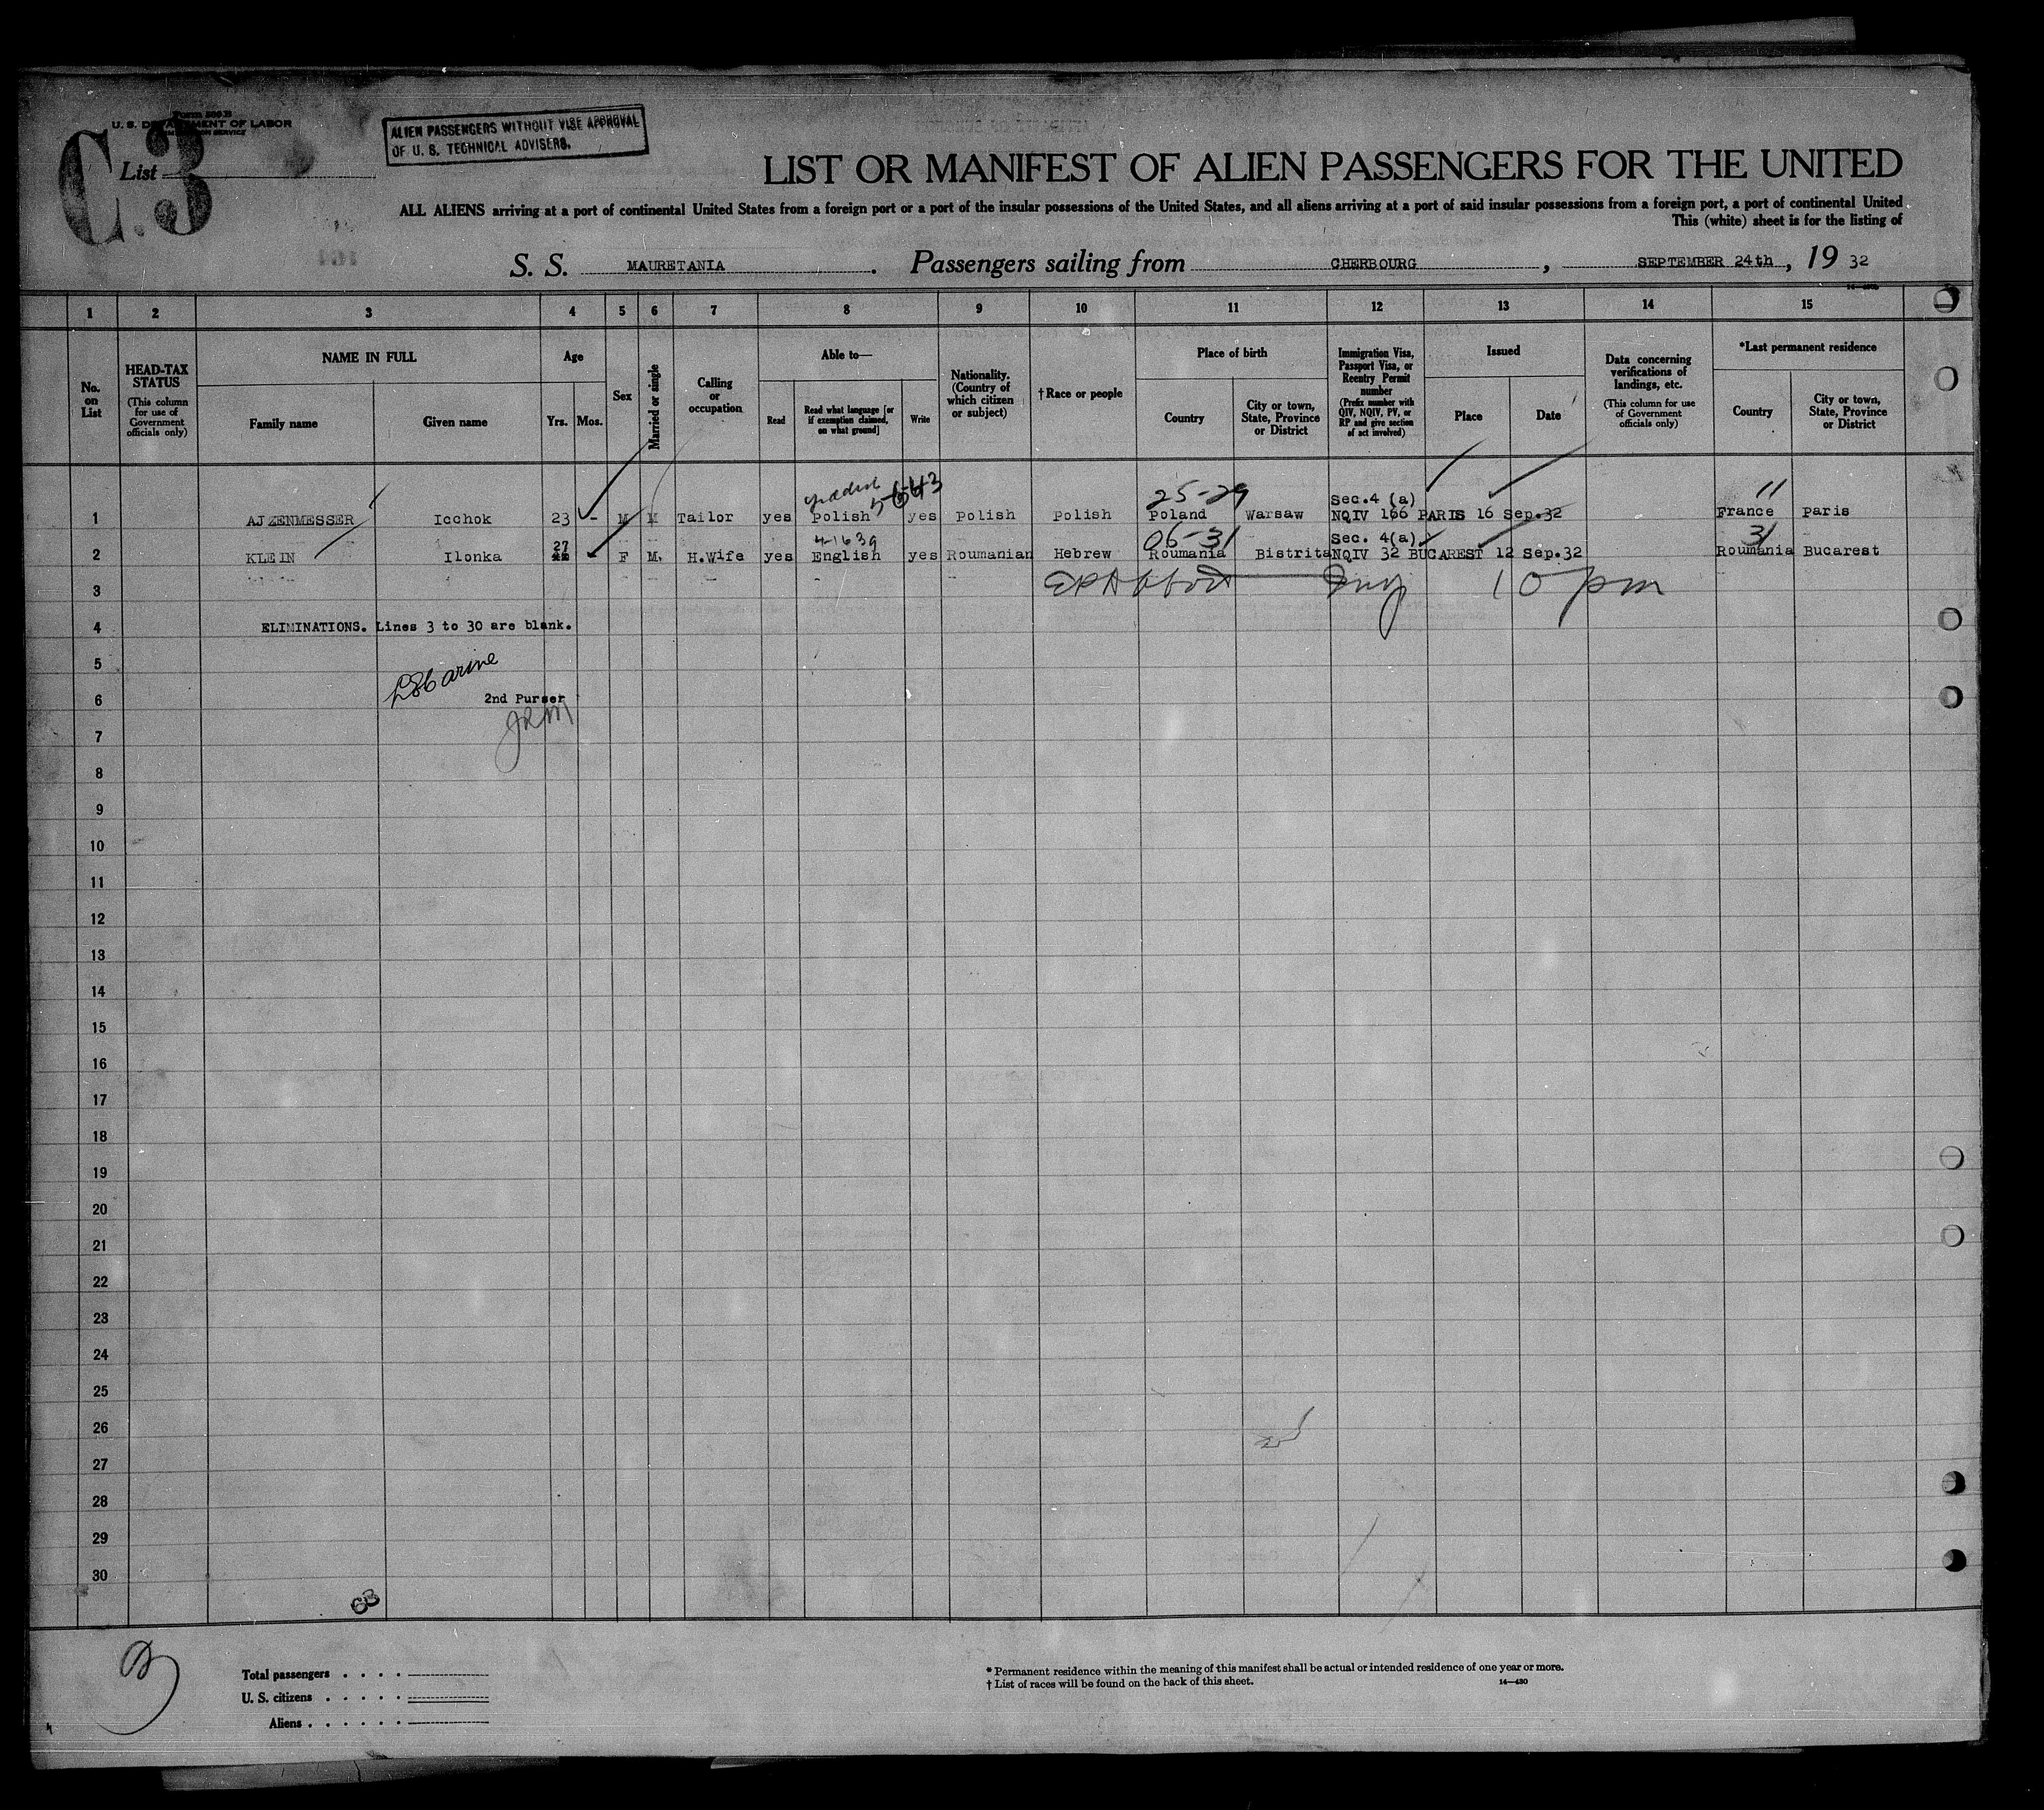 Form 500 B
U. S. DEPARTMENT OF LABOR
IMMIGRATION SERVICE
C.3
List
ALIEN PASSENGERS WITHOUT VISE APPROVAL
OF U. S. TECHNICAL ADVISERS.
LIST OR MANIFEST OF ALIEN PASSENGERS FOR THE UNITED
ALL ALIENS arriving at a port of continental United States from a foreign port or a port of the insular possessions of the United States, and all aliens arriving at a port of said insular possessions from a foreign port, a port of continental United
This (white) sheet is for the listing of
S. S. MAURETANIA . Passengers sailing from CHERBOURG , SEPTEMBER 24th , 19 32
1 2 3 4 5 6 7 8 9 10 11 12 13 14 15
No. on List
HEAD-TAX STATUS (This column for use of Government officials only)
NAME IN FULL
Family name
Given name
Age
Yrs.
Mos.
Sex
Married or single
Calling or occupation
Able to—
Read
Read what language [or if exemption claimed, on what ground]
Write
Nationality. (Country of which citizen or subject)
† Race or people
Place of birth
Country
City or town, State, Province or District
Immigration Visa, Passport Visa, or Reentry Permit number (Prefix number with QIV, NQIV, PV, or RP and give section of act involved)
Issued
Place
Date
Data concerning verifications of landings, etc. (This column for use of Government officials only)
*Last permanent residence
Country
City or town, State, Province or District
yiddish 5-6543 25-29 Sec.4 (a) 11
1 AJZENMESSER Icchok 23 - M M Tailor yes Polish yes Polish Polish Poland Warsaw NQIV 166 PARIS 16 Sep.32 France Paris
27 4-1639 06-31 Sec. 4(a) 31
2 KLEIN Ilonka F M. H.Wife yes English yes Roumanian Hebrew Roumania Bistrita NQIV 32 BUCAREST 12 Sep.32 Roumania Bucarest
3 10 pm
4 ELIMINATIONS. Lines 3 to 30 are blank.
5
6 2nd Purser
JRM
7
8
9
10
11
12
13
14
15
16
17
18
19
20
21
22
23
24
25
26
27
28
29
30
63
Total passengers . . . .
U. S. citizens . . . . .
Aliens . . . . . .
* Permanent residence within the meaning of this manifest shall be actual or intended residence of one year or more.
† List of races will be found on the back of this sheet.
14—430